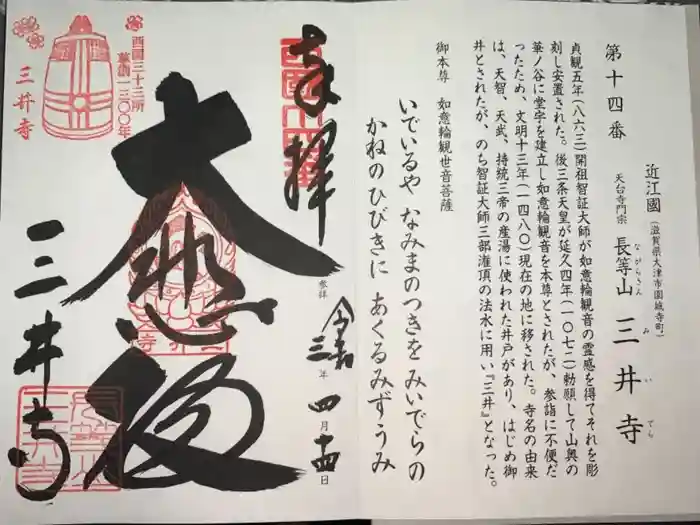 第十四番
近江國(滋賀県大津市園城寺町)
天台寺門宗 長等山 三井寺
ながらさん みいでら
貞観五年(八六三)開祖智証大師が如意輪観音の霊感を得てそれを彫
刻し安置された。後三条天皇が延久四年(一〇七二)勅願して山奥の
華ノ谷に堂宇を建立し如意輪観音を本尊とされたが、参詣に不便だ
ったため、文明十三年(一四八〇)現在の地に移された。寺名の由来
は、天智、天武、持統三帝の産湯に使われた井戸があり、はじめ御
井とされたが、のち智証大師三部潅頂の法水に用い『三井』となった。
御本尊 如意輪観世音菩薩
いでいるや なみまのつきを みいでらの
かねのひびきに あくるみずうみ
奉拝
参拝 令和三年四月十四日
大悲殿
三井寺
西國三十三所
草創一三〇〇年
三井寺